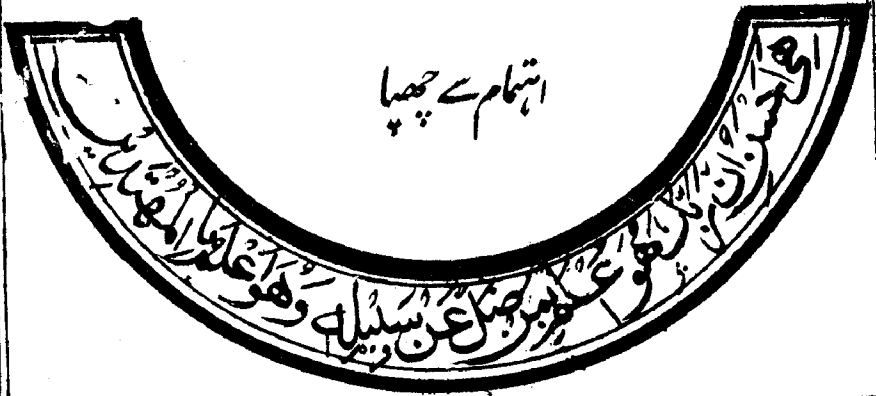 اہتمام سے چھپا
هِيَ أَحْسَنُ إِنَّ رَبَّكَ هُوَ أَعْلَمُ بِمَنْ ضَلَّ عَنْ سَبِيلِهِ وَهُوَ أَعْلَمُ بِالْمُهْتَدِينَ